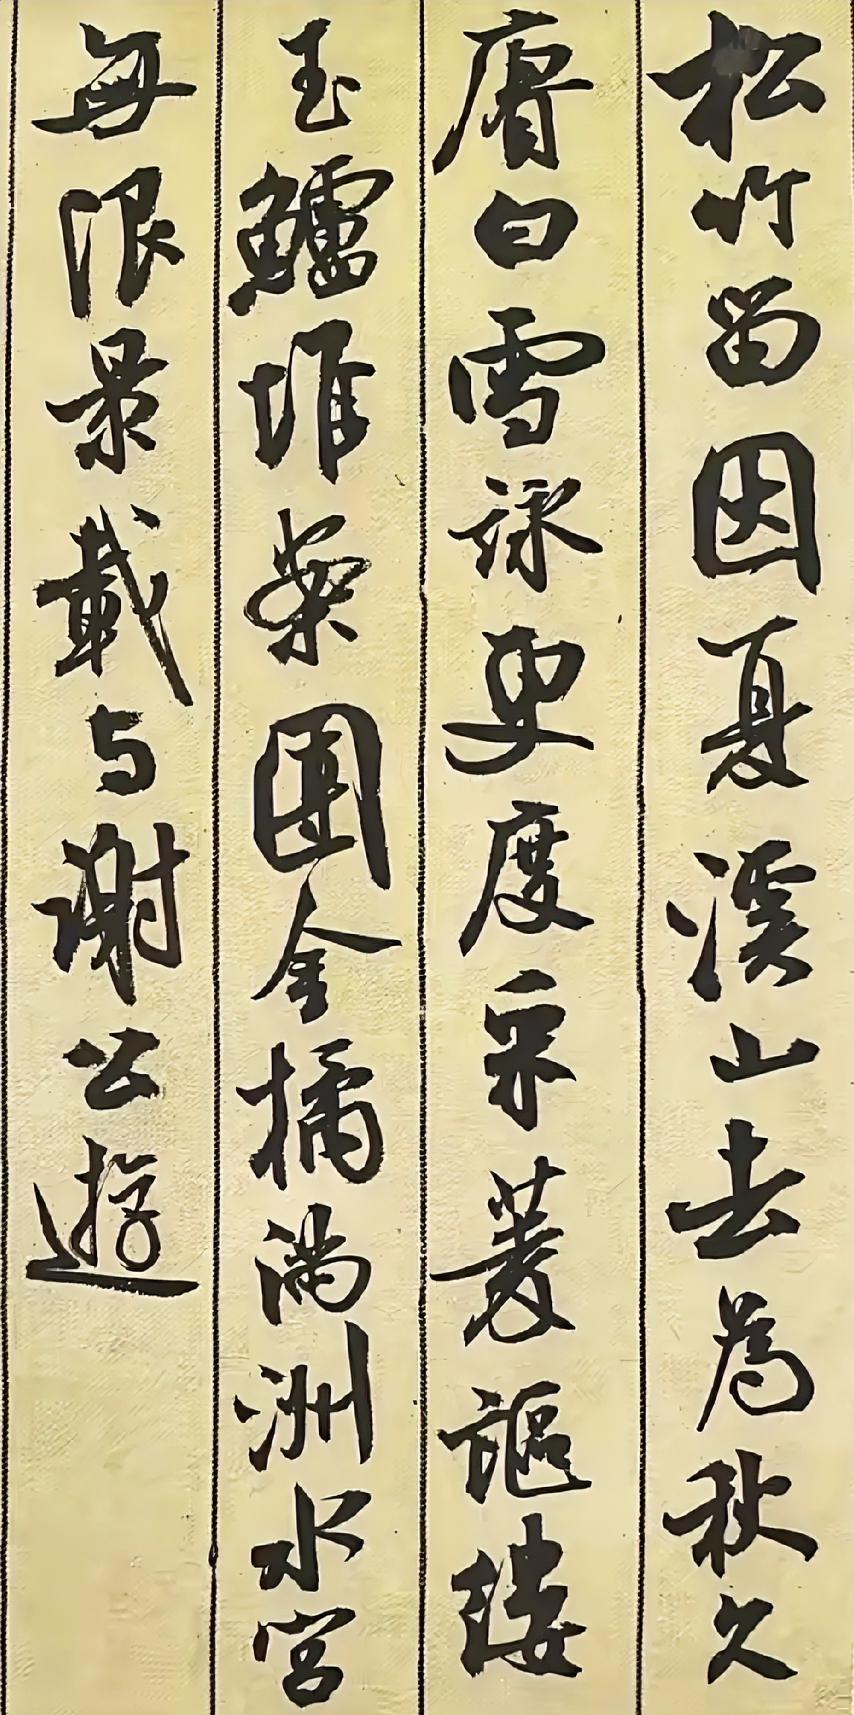 松竹留因夏溪山去為秋久
賡白雪詠更度采菱謳縷
玉鱸堆案團金橘滿洲水宮
無限景載與謝公遊